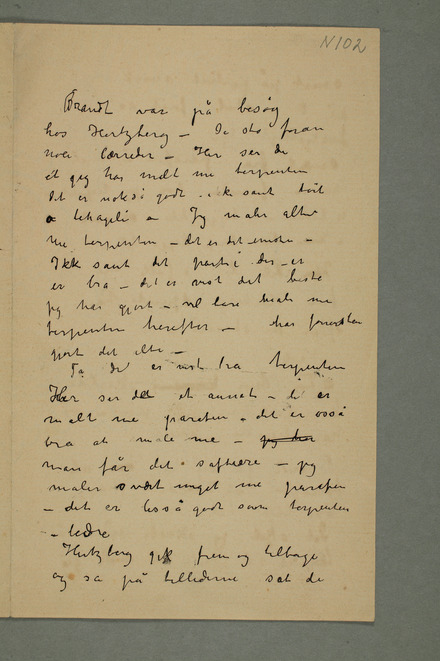 N102
Brandt var på besøg
hos Hertzberg – De sto foran
noen lærreder – Her ser du
et jeg har malt me terpentin
Det er nokså godt ikke sant
a behageli a Jeg maler altid
me terpentin – det er det eneste –
Ikke sant det parti der – er
er bra – det er vist det beste
jeg har gjort – vil bare male me
terpentin herefter – har forresten
gjort det ofte –
Ja du er vist bra terpentin
Her ser du et annet – det er
malt me parafin – det er også
bra at male me – jeg har
man får det saftiere – jeg
maler svært meget me parafin
– det er lisså godt som terpentin
– bedre
Hertzberg gik frem og tilbage
og sa på billederne sat de